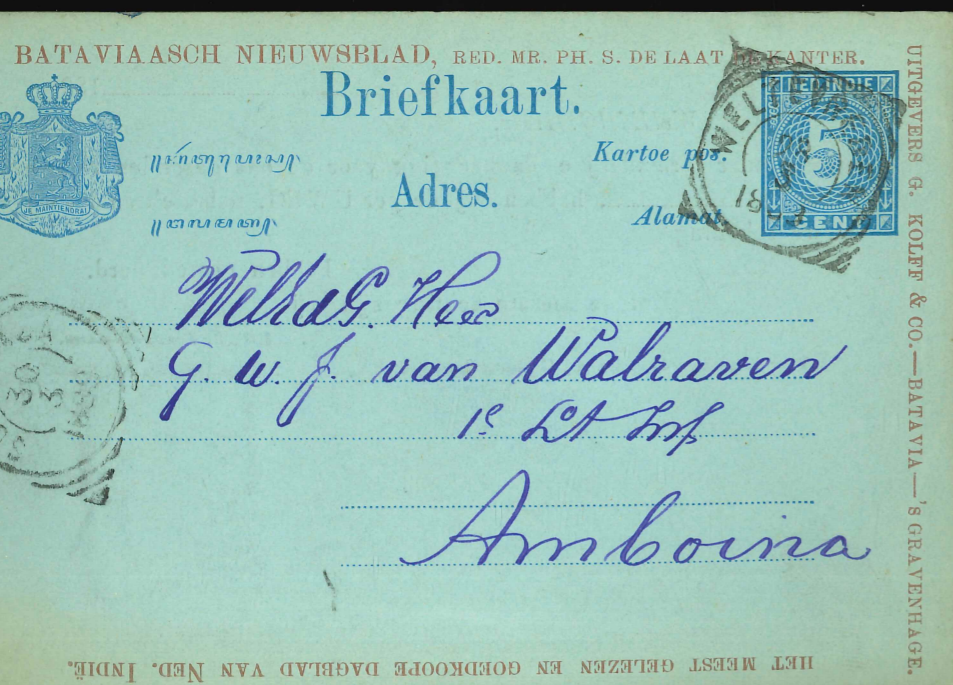 BATAVIAASCH NIEUWSBLAD, RED. MR. PH. S. DE LAAT DE KANTER.
Briefkaart.
NED. INDIE
5
CENT
Kartoe pos.
Adres.
Alamat.
JE MAINTIENDRAI
WELTEVREDEN
WelEdG. Heer
G. W. J. van Walraven
1e Lt Inf
Amboina
30
3
1891
UITGEVERS G. KOLFF & CO.—BATAVIA—'S GRAVENHAGE.
HET MEEST GELEZEN EN GOEDKOOPE DAGBLAD VAN NED. INDIË.